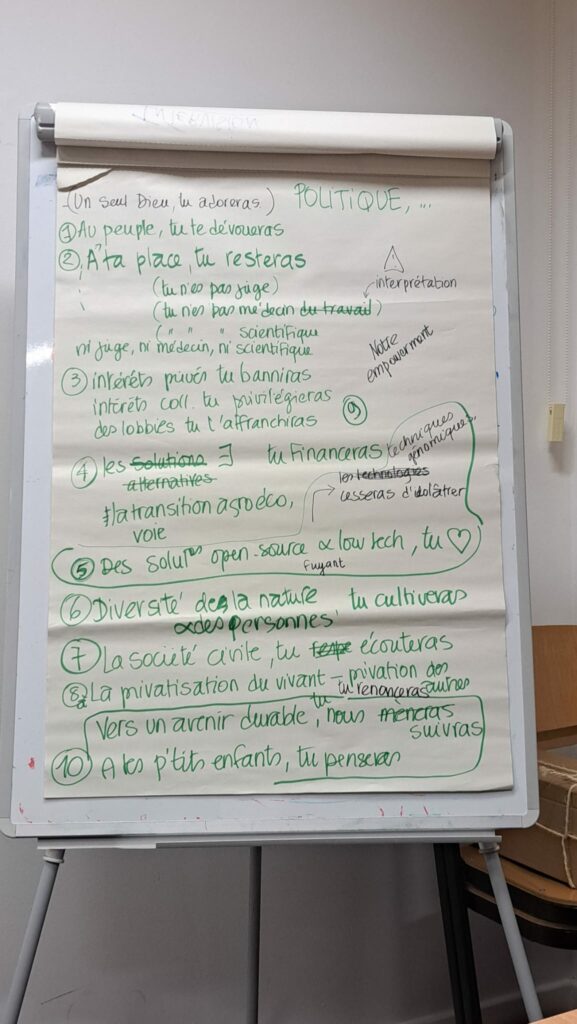 -(Un seul Dieu, tu adoreras.) POLITIQUE, ...
① Au peuple, tu te dévoueras
② À ta place, tu resteras
(tu n'es pas juge)
interprétation
(tu n'es pas médecin du travail)
(" " " scientifique
ni juge, ni médecin, ni scientifique
Notre empowerment
③ intérêts privés tu banniras
intérêts coll. tu privilégieras
des lobbies tu t'affranchiras
⑨
④ les solutions tu financeras
alternatives
techniques génomiques,
les technologies
cesseras d'idolâtrer
la transition agroéco,
voie
⑤ Des solutº open-source & low tech, tu ♡
fuyant
⑥ Diversité de la nature tu cultiveras
& des personnes
⑦ La société civile, tu écouteras
⑧ La privatisation du vivant - privation des autres
tu renonceras
Vers un avenir durable, tu nous mèneras
suivras
⑩ A les p'tits enfants, tu penseras